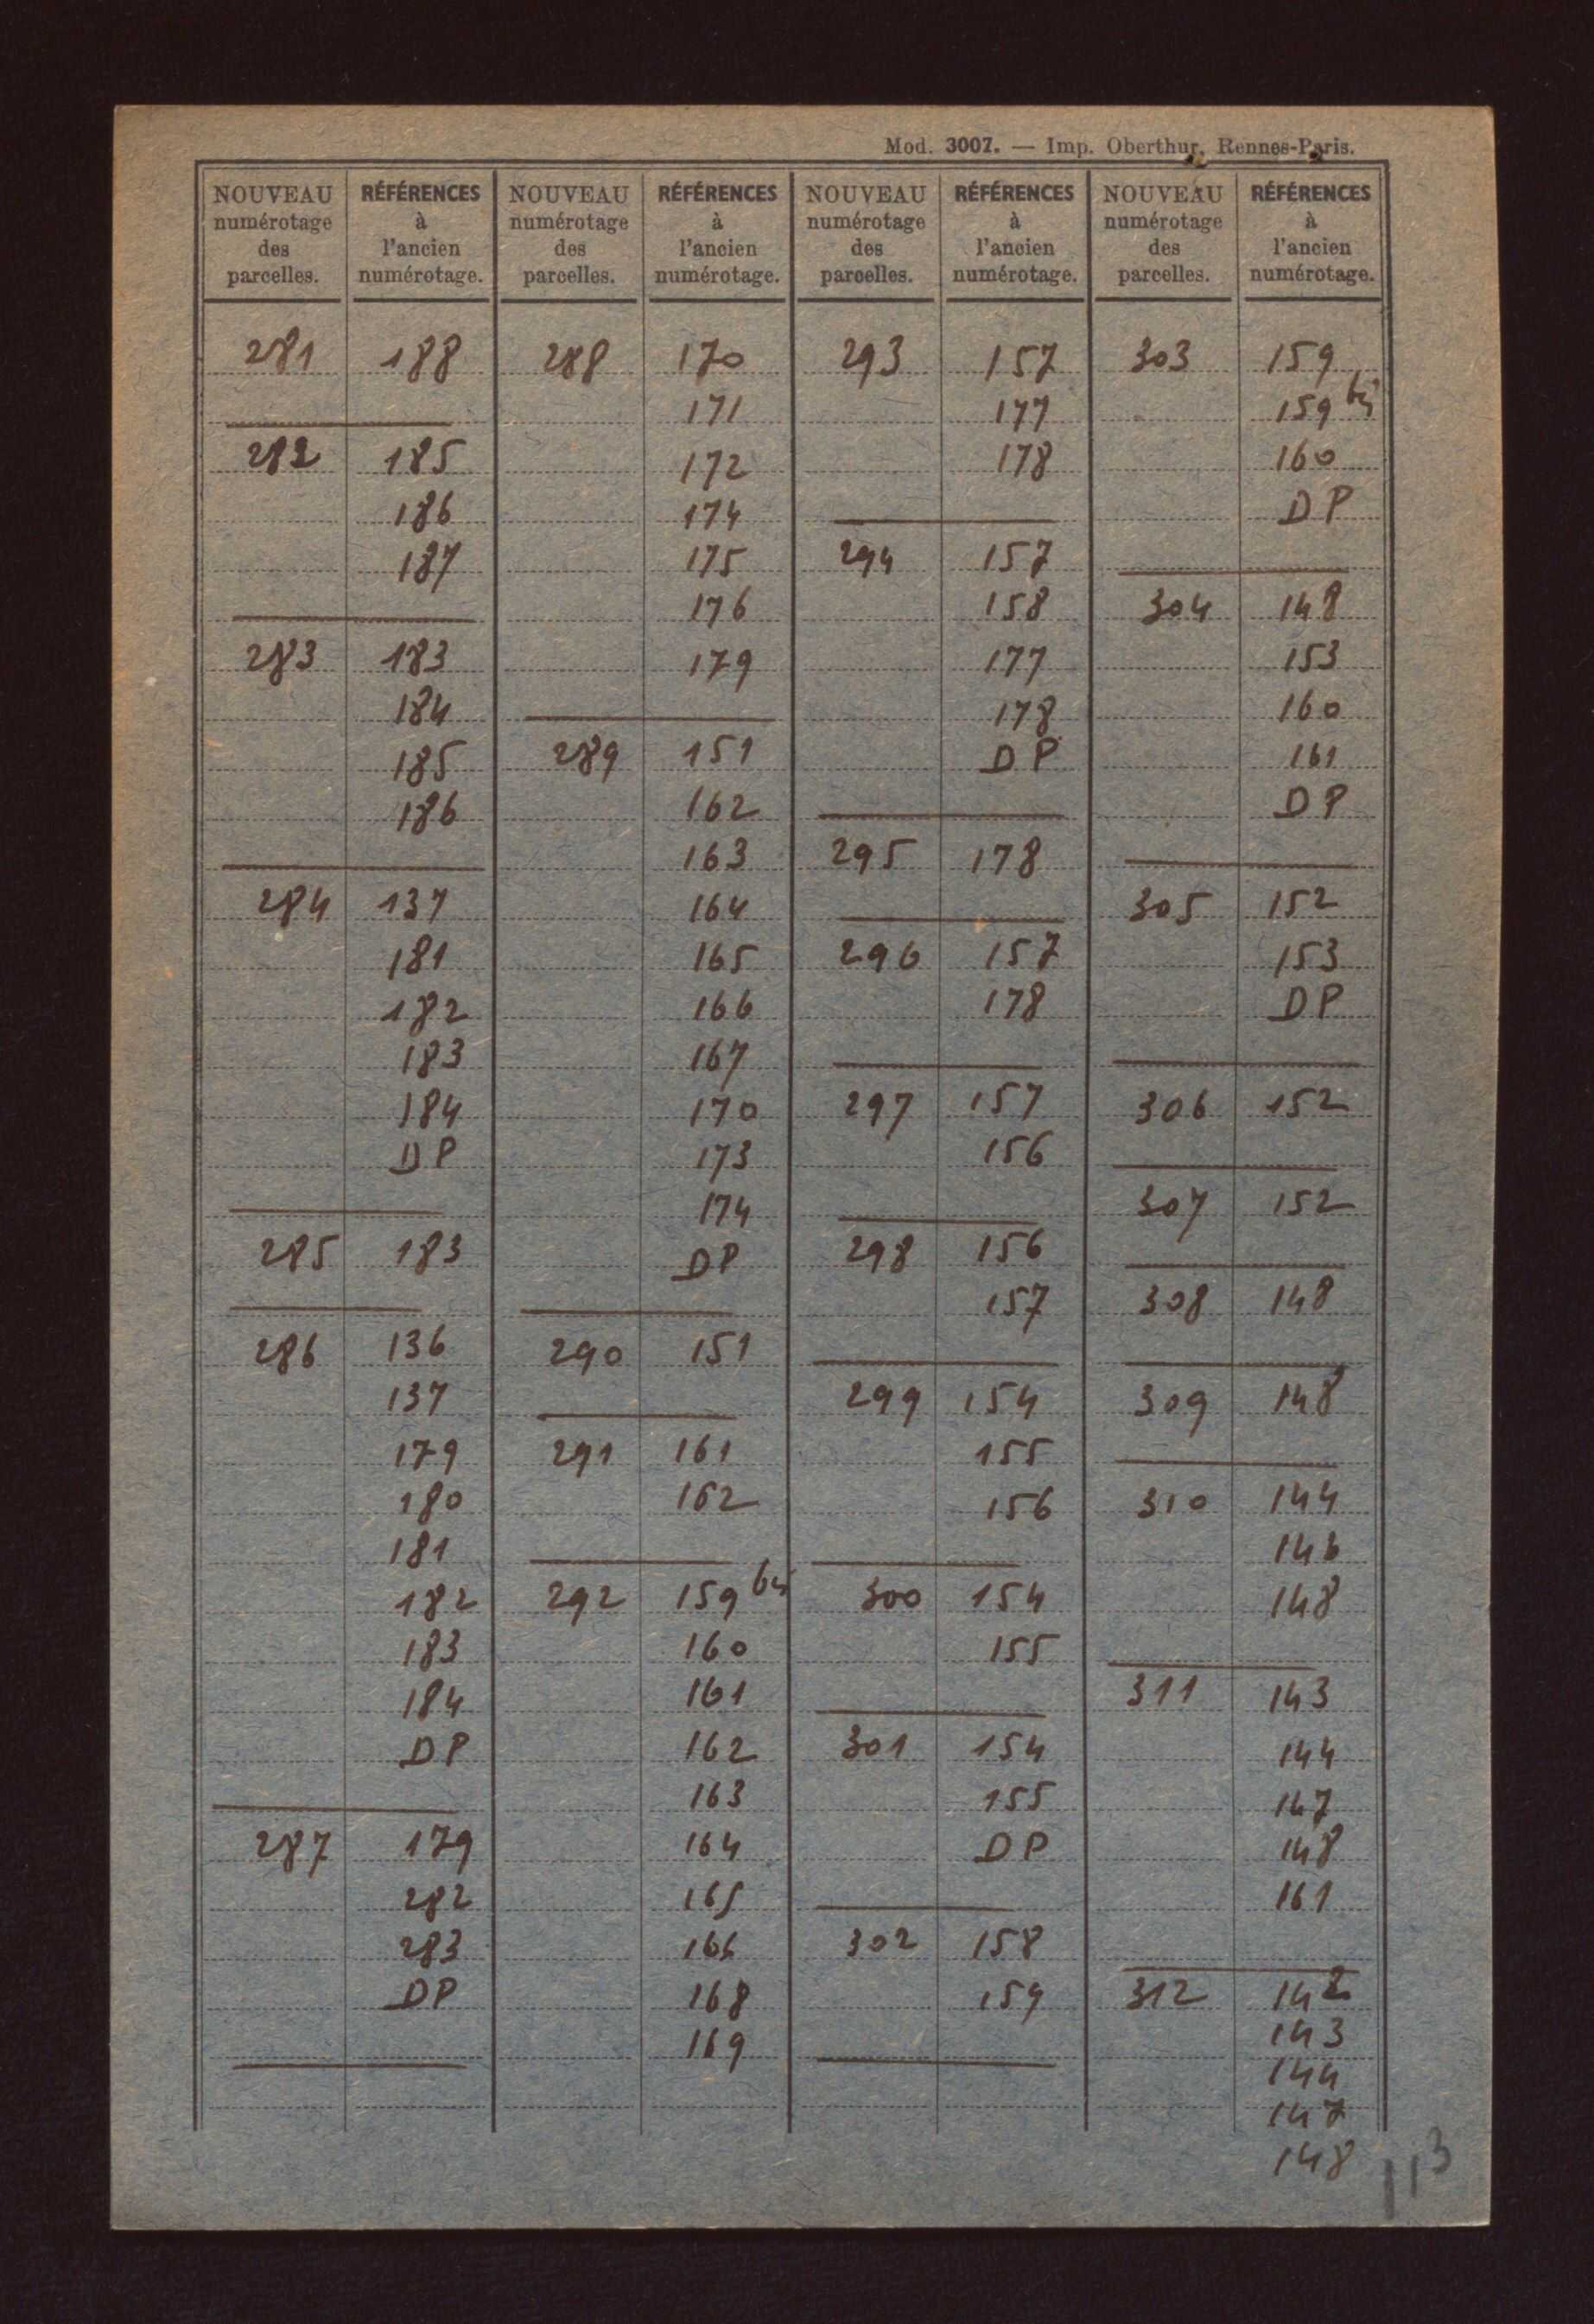 Mod. 3007. — Imp. Oberthur, Rennes-Paris.
NOUVEAU numérotage des parcelles.
RÉFÉRENCES à l'ancien numérotage.
281 188
282 185
186
187
283 183
184
185
186
284 137
181
182
183
184
DP
285 183
286 136
137
179
180
181
182
183
184
DP
287 179
282
283
DP
NOUVEAU numérotage des parcelles.
RÉFÉRENCES à l'ancien numérotage.
288 170
171
172
174
175
176
179
289 151
162
163
164
165
166
167
170
173
174
DP
290 151
291 161
162
292 159 bis
160
161
162
163
164
165
166
168
169
NOUVEAU numérotage des parcelles.
RÉFÉRENCES à l'ancien numérotage.
293 157
177
178
294 157
158
177
178
DP
295 178
296 157
178
297 157
156
298 156
157
299 154
155
156
300 154
155
301 154
155
DP
302 158
159
NOUVEAU numérotage des parcelles.
RÉFÉRENCES à l'ancien numérotage.
303 159
159 bis
160
DP
304 148
153
160
161
DP
305 152
153
DP
306 152
307 152
308 148
309 148
310 144
146
148
311 143
144
147
148
161
312 142
143
144
147
148
113